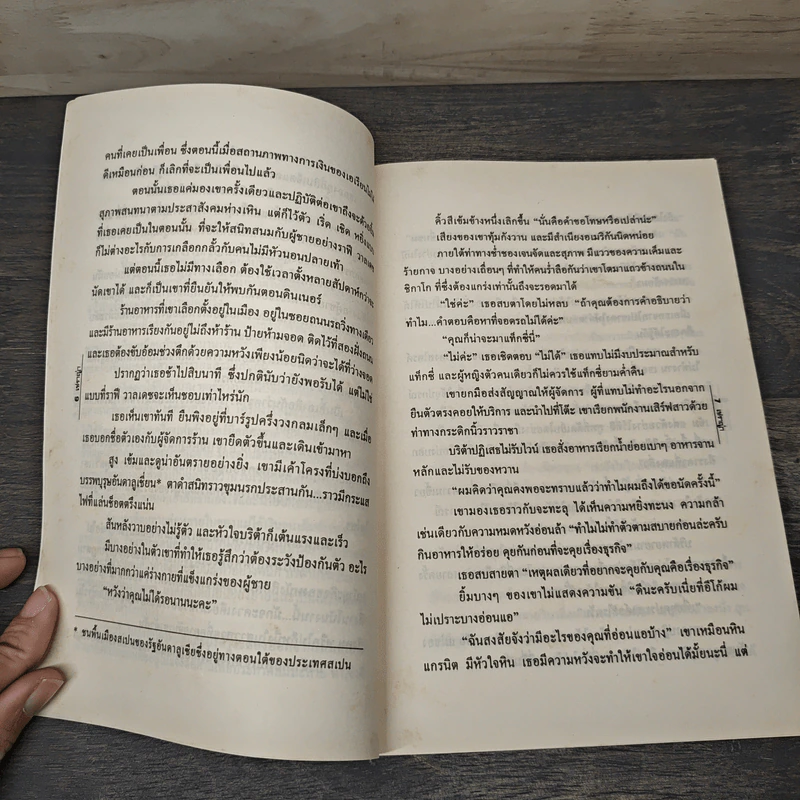 คนที่เคยเป็นเพื่อน ซึ่งตอนนี้เมื่อสถานภาพทางการเงินของเอเรียนไม่
ดีเหมือนก่อน ก็เลิกที่จะเป็นเพื่อนไปแล้ว
ตอนนั้นเธอแค่มองเขาครั้งเดียวและปฏิบัติต่อเขาถึงจะด้วย
สุภาพสนทนาตามประสาสังคมห่างเหิน แต่ก็ไว้ตัว เริ่ด เชิด หยิ่ง
ที่เธอเคยเป็นในตอนนั้น ที่จะให้สนิทสนมกับผู้ชายอย่างราฟี วาลเดช
ก็ไม่ต่างอะไรกับการเกลือกกลั้วกับคนไม่มีหัวนอนปลายเท้า
แต่ตอนนี้เธอไม่มีทางเลือก ต้องใช้เวลาตั้งหลายสัปดาห์กว่าจะ
นัดเขาได้ และก็เป็นเขาที่ยืนยันให้พบกันตอนดินเนอร์
ร้านอาหารที่เขาเลือกตั้งอยู่ในเมือง อยู่ในซอยถนนรถวิ่งทางเดียว
และมีร้านอาหารเรียงกันอยู่ไม่ถึงห้าร้าน ป้ายห้ามจอด ติดไว้ที่สองฝั่งถนน
และเธอต้องขับอ้อมช่วงตึกด้วยความหวังเพียงน้อยนิดว่าจะได้ที่ว่างจอด
ปรากฏว่าเธอช้าไปสิบนาที ซึ่งปกตินับว่ายังพอรับได้ แต่ไม่ใช่
แบบที่ราฟี วาลเดชจะเห็นชอบเท่าไหร่นัก
เธอเห็นเขาทันที ยืนพิงอยู่ที่บาร์รูปครึ่งวงกลมเล็กๆ และเมื่อ
เธอบอกชื่อตัวเองกับผู้จัดการร้าน เขายืดตัวขึ้นและเดินเข้ามาหา
สูง เข้มและดูน่าอันตรายอย่างยิ่ง เขามีเค้าโครงที่บ่งบอกถึง
บรรพบุรุษอันดาลูเชี่ยน* ตาดำสนิทราวขุมนรกประสานกัน...ราวมีกระแส
ไฟที่แล่นช็อตตรึงแน่น
สันหลังวาบอย่างไม่รู้ตัว และหัวใจบริต้าก็เต้นแรงและเร็ว
มีบางอย่างในตัวเขาที่ทำให้เธอรู้สึกว่าต้องระวังป้องกันตัว อะไร
บางอย่างที่มากกว่าแค่ร่างกายที่แข็งแกร่งของผู้ชาย
“หวังว่าคุณไม่ได้รอนานนะคะ”
* ชนพื้นเมืองสเปนของรัฐอันดาลูเซียซึ่งอยู่ทางตอนใต้ของประเทศสเปน
6
คิ้วสีเข้มข้างหนึ่งเลิกขึ้น “นั่นคือคำขอโทษหรือเปล่าน่ะ”
เสียงของเขาทุ้มกังวาน และมีสำเนียงอเมริกันนิดหน่อย
ภายใต้ท่าทางช่ำชองเจนจัดและสุภาพ มีแววของความเค็มและ
ร้ายกาจ บางอย่างเถื่อนๆ ที่ทำให้คนร่ำลือกันว่าเขาโตมาแถวข้างถนนใน
ชิกาโก ที่ซึ่งต้องแกร่งเท่านั้นถึงจะรอดมาได้
“ใช่ค่ะ” เธอสบตาโดยไม่หลบ “ถ้าคุณต้องการคำอธิบายว่า
ทำไม...คำตอบคือหาที่จอดรถไม่ได้ค่ะ”
“คุณก็น่าจะมาแท็กซี่นี่”
“ไม่ค่ะ” เธอเชิดตอบ “ไม่ได้” เธอแทบไม่มีงบประมาณสำหรับ
แท็กซี่ และผู้หญิงตัวคนเดียวก็ไม่ควรใช้แท็กซี่ยามค่ำคืน
เขายกมือส่งสัญญาณให้ผู้จัดการ ผู้ที่แทบไม่ทำอะไรนอกจาก
ยืนตัวตรงคอยให้บริการ และนำไปที่โต๊ะ เขาเรียกพนักงานเสิร์ฟสาวด้วย
ท่าทางกระดิกนิ้วราวราชา
บริต้าปฏิเสธไม่รับไวน์ เธอสั่งอาหารเรียกน้ำย่อยเบาๆ อาหารจาน
หลักและไม่รับของหวาน
“ผมคิดว่าคุณคงพอจะทราบแล้วว่าทำไมผมถึงได้ขอนัดครั้งนี้”
เขามองเธอราวกับจะทะลุ ได้เห็นความหยิ่งทะนง ความกล้า
เช่นเดียวกับความหมดหวังอ่อนล้า “ทำไมไม่ทำตัวตามสบายก่อนล่ะครับ
กินอาหารให้อร่อย คุยกันก่อนที่จะคุยเรื่องธุรกิจ”
เธอสบสายตา “เหตุผลเดียวที่อยากจะคุยกับคุณคือเรื่องธุรกิจ”
ยิ้มบางๆ ของเขาไม่แสดงความขัน “ดีนะครับเนี่ยที่อีโก้ผม
ไม่เปราะบางอ่อนแอ”
“ฉันสงสัยจังว่ามีอะไรของคุณที่อ่อนแอบ้าง” เขาเหมือนหิน
แกรนิต มีหัวใจหิน เธอมีความหวังจะทำให้เขาใจอ่อนได้มั้ยนะนี่ แต่
7